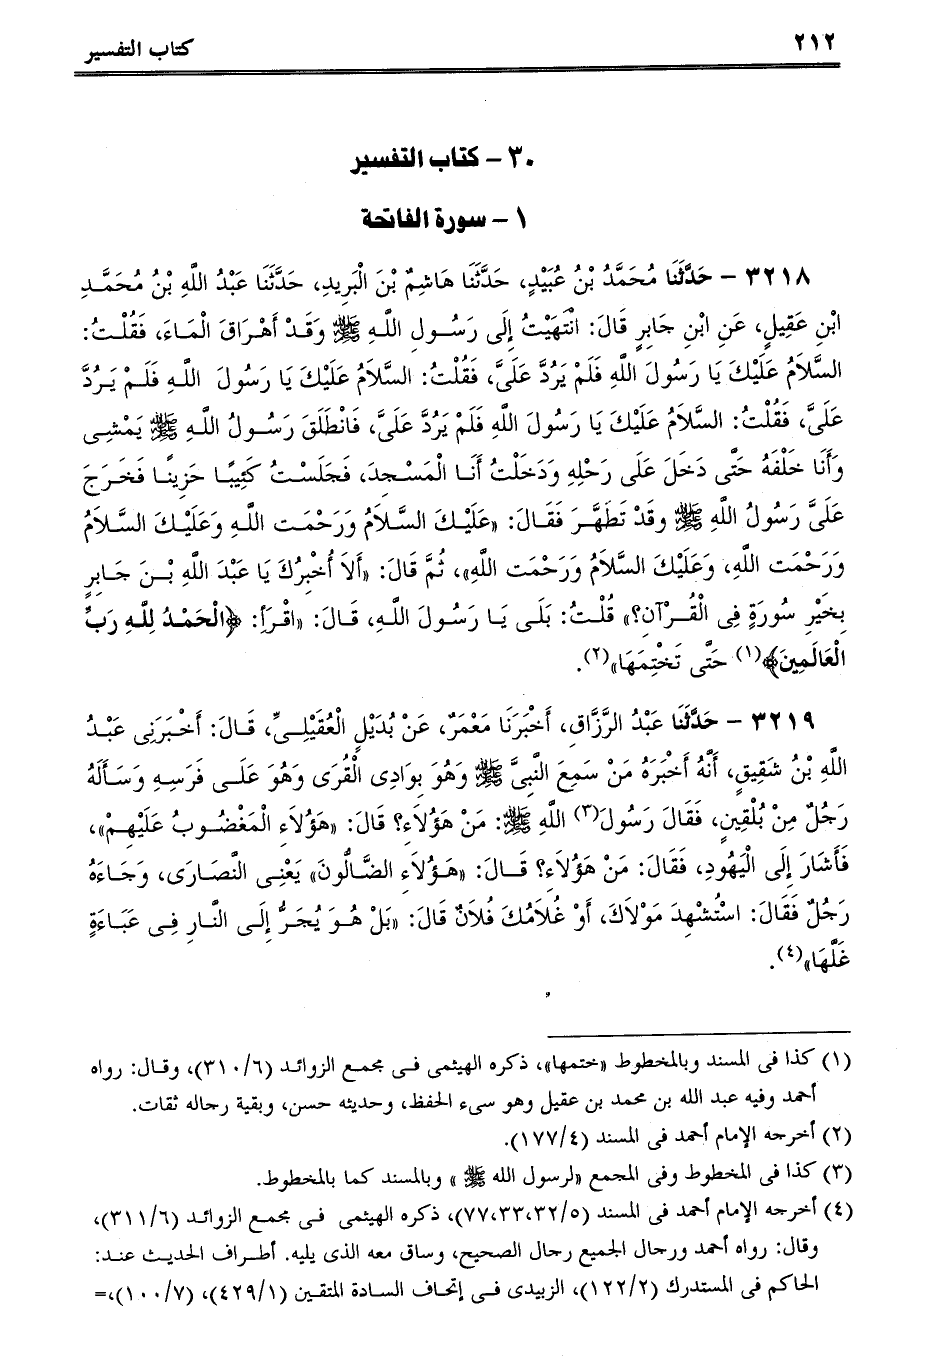 ٢١٢
كتاب التفسير
٣٠ - كتاب التفسير
١ - سورة الفاتحة
٣٢١٨ - حَدَّثَنَا مُحَمَّدُ بْنُ عُبَيْدٍ، حَدَّثَنَا هَاشِمُ بْنَ الْبَرِيدِ، حَدَّثَنَا عَبْدُ اللَّهِ بْنُ مُحَمَّدِ
ابْنِ عَقِيلٍ، عَنِ ابْنِ جَابِرٍ قَالَ: انْتَهَيْتُ إِلَى رَسُولِ اللَّهِ ﷺ وَقَدْ أَهْرَاقَ الْمَاءَ، فَقُلْتُ:
السَّلاَمُ عَلَيْكَ يَا رَسُولَ اللَّهِ فَلَمْ يَرُدَّ عَلَىَّ، فَقُلْتُ: السَّلاَمُ عَلَيْكَ يَا رَسُولَ اللَّهِ فَلَمْ يَرُدَّ
عَلَىَّ، فَقُلْتُ: السَّلاَمُ عَلَيْكَ يَا رَسُولَ اللَّهِ فَلَمْ يَرُدَّ عَلَىَّ، فَانْطَلَقَ رَسُولُ اللَّهِ ﷺ يَمْشِى
وَأَنَا خَلْفَهُ حَتَّى دَخَلَ عَلَى رَحْلِهِ وَدَخَلْتُ أَنَا الْمَسْجِدَ، فَجَلَسْتُ كَئِيبًا حَزِينًا فَخَرَجَ
عَلَىَّ رَسُولُ اللَّهِ ﷺ وقَدْ تَطَهَّرَ فَقَالَ: «عَلَيْكَ السَّلاَمُ وَرَحْمَت اللَّهِ وَعَلَيْكَ السَّلاَمُ
وَرَحْمَت اللَّهِ، وَعَلَيْكَ السَّلاَمُ وَرَحْمَت اللَّهِ»، ثُمَّ قَالَ: «أَلاَ أُخْبِرُكَ يَا عَبْدَ اللَّهِ بْنَ جَابِرٍ
بِخَيْرِ سُورَةٍ فِى الْقُرْآنِ؟» قُلْتُ: بَلَى يَا رَسُولَ اللَّهِ، قَالَ: «اقْرَأِ: ﴿الْحَمْدُ لِلَّهِ رَبِّ
الْعَالَمِينَ﴾(١) حَتَّى تَخْتِمَهَا»(٢).
٣٢١٩ - حَدَّثَنَا عَبْدُ الرَّزَّاقِ، أَخْبَرَنَا مَعْمَرٌ، عَنْ بُدَيْلٍ الْعُقَيْلِىِّ، قَالَ: أَخْبَرَنِى عَبْدُ
اللَّهِ بْنُ شَقِيقٍ، أَنَّهُ أَخْبَرَهُ مَنْ سَمِعَ النَّبِىَّ ﷺ وَهُوَ بِوَادِى الْقُرَى وَهُوَ عَلَى فَرَسِهِ وَسَأَلَهُ
رَجُلٌ مِنْ بُلْقِينٍ، فَقَالَ رَسُولَ(٣) اللَّهِ ﷺ: مَنْ هَؤُلاَءِ؟ قَالَ: «هَؤُلاَءِ الْمَغْضُوبُ عَلَيْهِمْ»،
فَأَشَارَ إِلَى الْيَهُودِ، فَقَالَ: مَنْ هَؤُلاَءِ؟ قَالَ: «هَؤُلاَءِ الضَّالُّونَ» يَعْنِى النَّصَارَى، وَجَاءَهُ
رَجُلٌ فَقَالَ: اسْتُشْهِدَ مَوْلاَكَ، أَوْ غُلاَمُكَ فُلاَنٌ قَالَ: «بَلْ هُوَ يُجَرُّ إِلَى النَّارِ فِى عَبَاءَةٍ
غَلَّهَا»(٤).
(١) كذا فى المسند وبالمخطوط «ختمها»، ذكره الهيثمى فى مجمع الزوائد (٣١٠/٦)، وقال: رواه
أحمد وفيه عبد الله بن محمد بن عقيل وهو سىء الحفظ، وحديثه حسن، وبقية رجاله ثقات.
(٢) أخرجه الإمام أحمد فى المسند (١٧٧/٤).
(٣) كذا فى المخطوط وفى المجمع «لرسول الله ﷺ» وبالمسند كما بالمخطوط.
(٤) أخرجه الإمام أحمد فى المسند (٧٧،٣٣،٣٢/٥)، ذكره الهيثمى فى مجمع الزوائد (٣١١/٦)،
وقال: رواه أحمد ورجال الجميع رجال الصحيح، وساق معه الذى يليه. أطراف الحديث عند:
الحاكم فى المستدرك (١٢٢/٢)، الزبيدى فى إتحاف السادة المتقين (٤٢٩/١)، (١٠٠/٧)،=